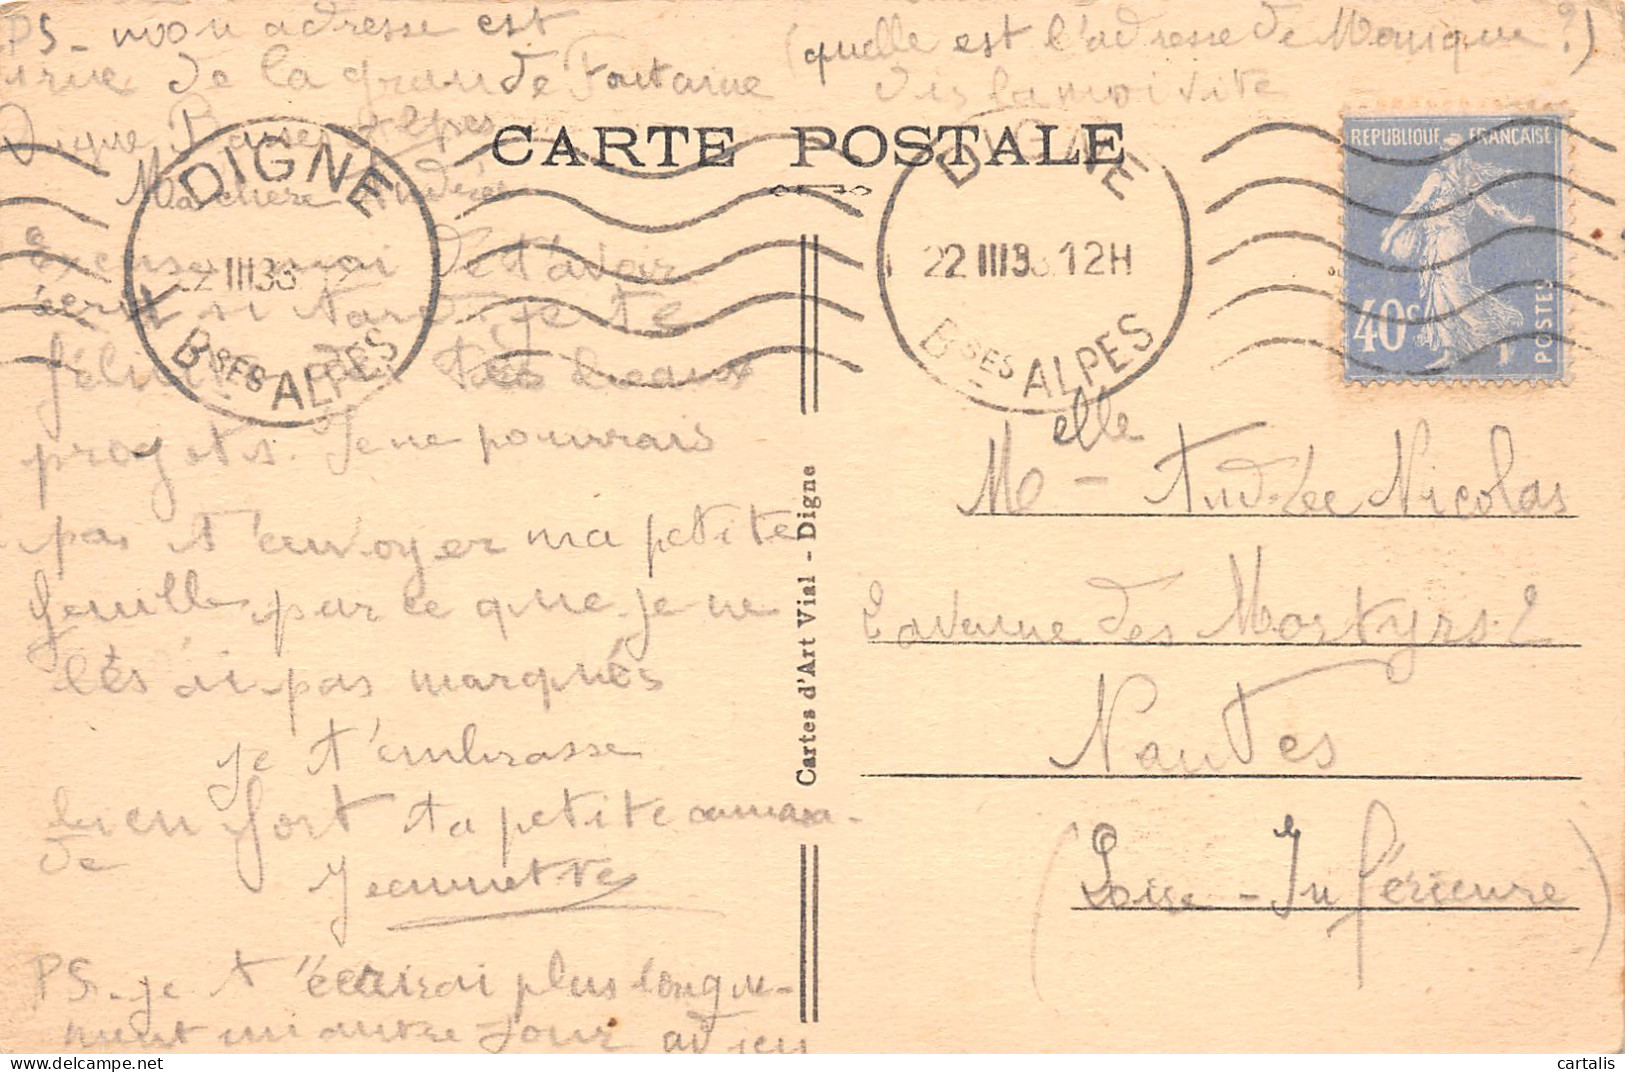 PS - mon adresse est
rue de la grande Fontaine
Digne Basses Alpes
(quelle est l'adresse de Monique ?)
dis la moi vite
CARTE POSTALE
DIGNE
22 III 33
Bses ALPES
DIGNE
22 III 3 12H
Bses ALPES
REPUBLIQUE FRANÇAISE
40c
POSTES
Excuse moi de t'avoir
écrit si tard je te
tes beaux
projets. Je ne pourrais
pas t'envoyer ma petite
feuille par ce que je ne
les ai pas marqués
je t'embrasse
bien fort ta petite camara-
de
Jeannette
PS - je t'écrirai plus longue-
ment un autre jour adieu
Cartes d'Art Vial - Digne
Melle Andrée Nicolas
des Martyrs
Nantes
(Loire-Inférieure)
cartalis